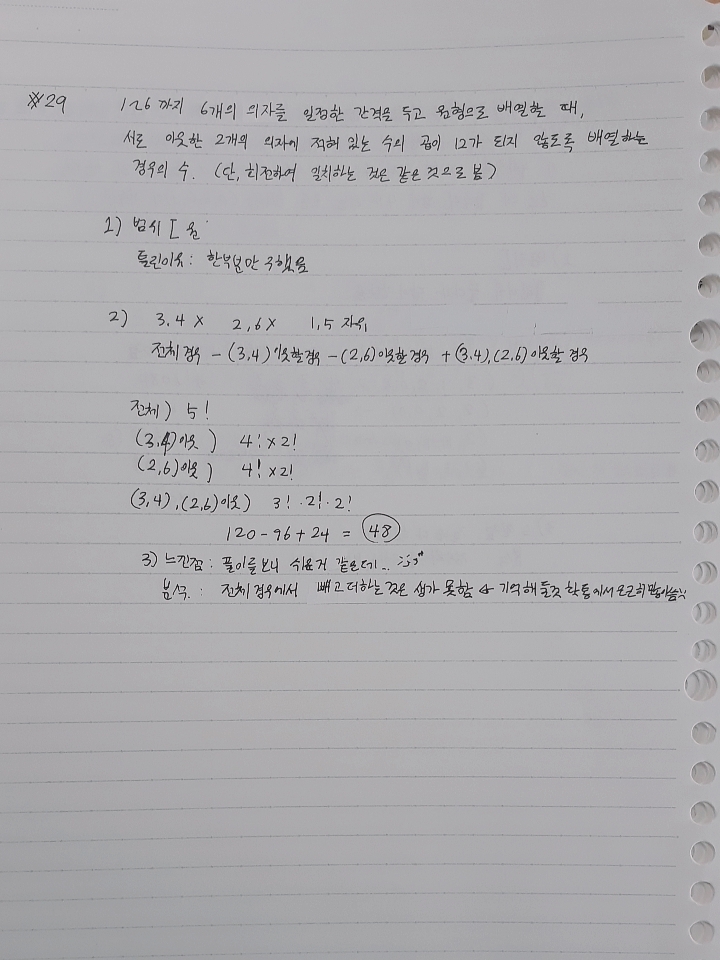 ※29 1~6 까지 6개의 의자를 일정한 간격을 두고 원형으로 배열할 때,
서로 이웃한 2개의 의자에 적혀 있는 수의 곱이 12가 되지 않도록 배열하는
경우의 수. (단, 회전하여 일치하는 것은 같은 것으로 봄)
1) 범위 [ 원
틀린이유: 한부분만 구했음
2) 3.4 X 2,6 X 1,5 자유
전체 경우 - (3,4) 이웃할경우 - (2,6) 이웃할 경우 + (3.4), (2,6) 이웃할 경우
전체) 5!
(3,4)이웃) 4! x 2!
(2,6)이웃) 4! x 2!
(3,4), (2,6)이웃) 3! · 2! · 2!
120 - 96 + 24 = 48
3) 느낀점: 풀이를 보니 쉬운거 같은데..
분석: 전체 경우에서 빼고 더하는 것은 생각 못함 기억해 둘것